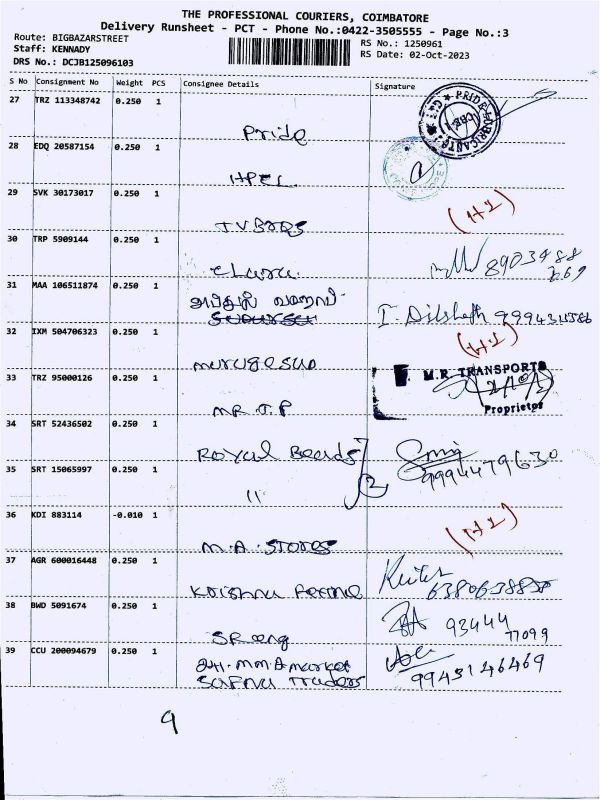 THE PROFESSIONAL COURIERS, COIMBATORE
Delivery Runsheet - PCT - Phone No.:0422-3505555 - Page No.:3
Route: BIGBAZARSTREET
RS No.: 1250961
Staff: KENNADY
RS Date: 02-Oct-2023
DRS No.: DCJB125096103
S No Consignment No Weight PCS Consignee Details Signature
27 TRZ 113348742 0.250 1
Pride
28 EDQ 20587154 0.250 1
HPCL
29 SVK 30173017 0.250 1
(H1)
TV Bags
30 TRP 5909144 0.250 1
31 MAA 106511874 0.250 1
I. Dilshath
32 IXM 504706323 0.250 1
(H1)
murugesan
33 TRZ 95000126 0.250 1
M.R. TRANSPORTS
Proprietor
MR J.P
34 SRT 52436502 0.250 1
Royal Beards
9994479630
35 SRT 15065997 0.250 1
11
2
36 KDI 883114 -0.010 1
(H1)
M.A. STORES
37 AGR 600016448 0.250 1
Krishna
38 BWD 5091674 0.250 1
93444
77099
39 CCU 200094679 0.250 1
market
Sapna Traders
9943146469
9